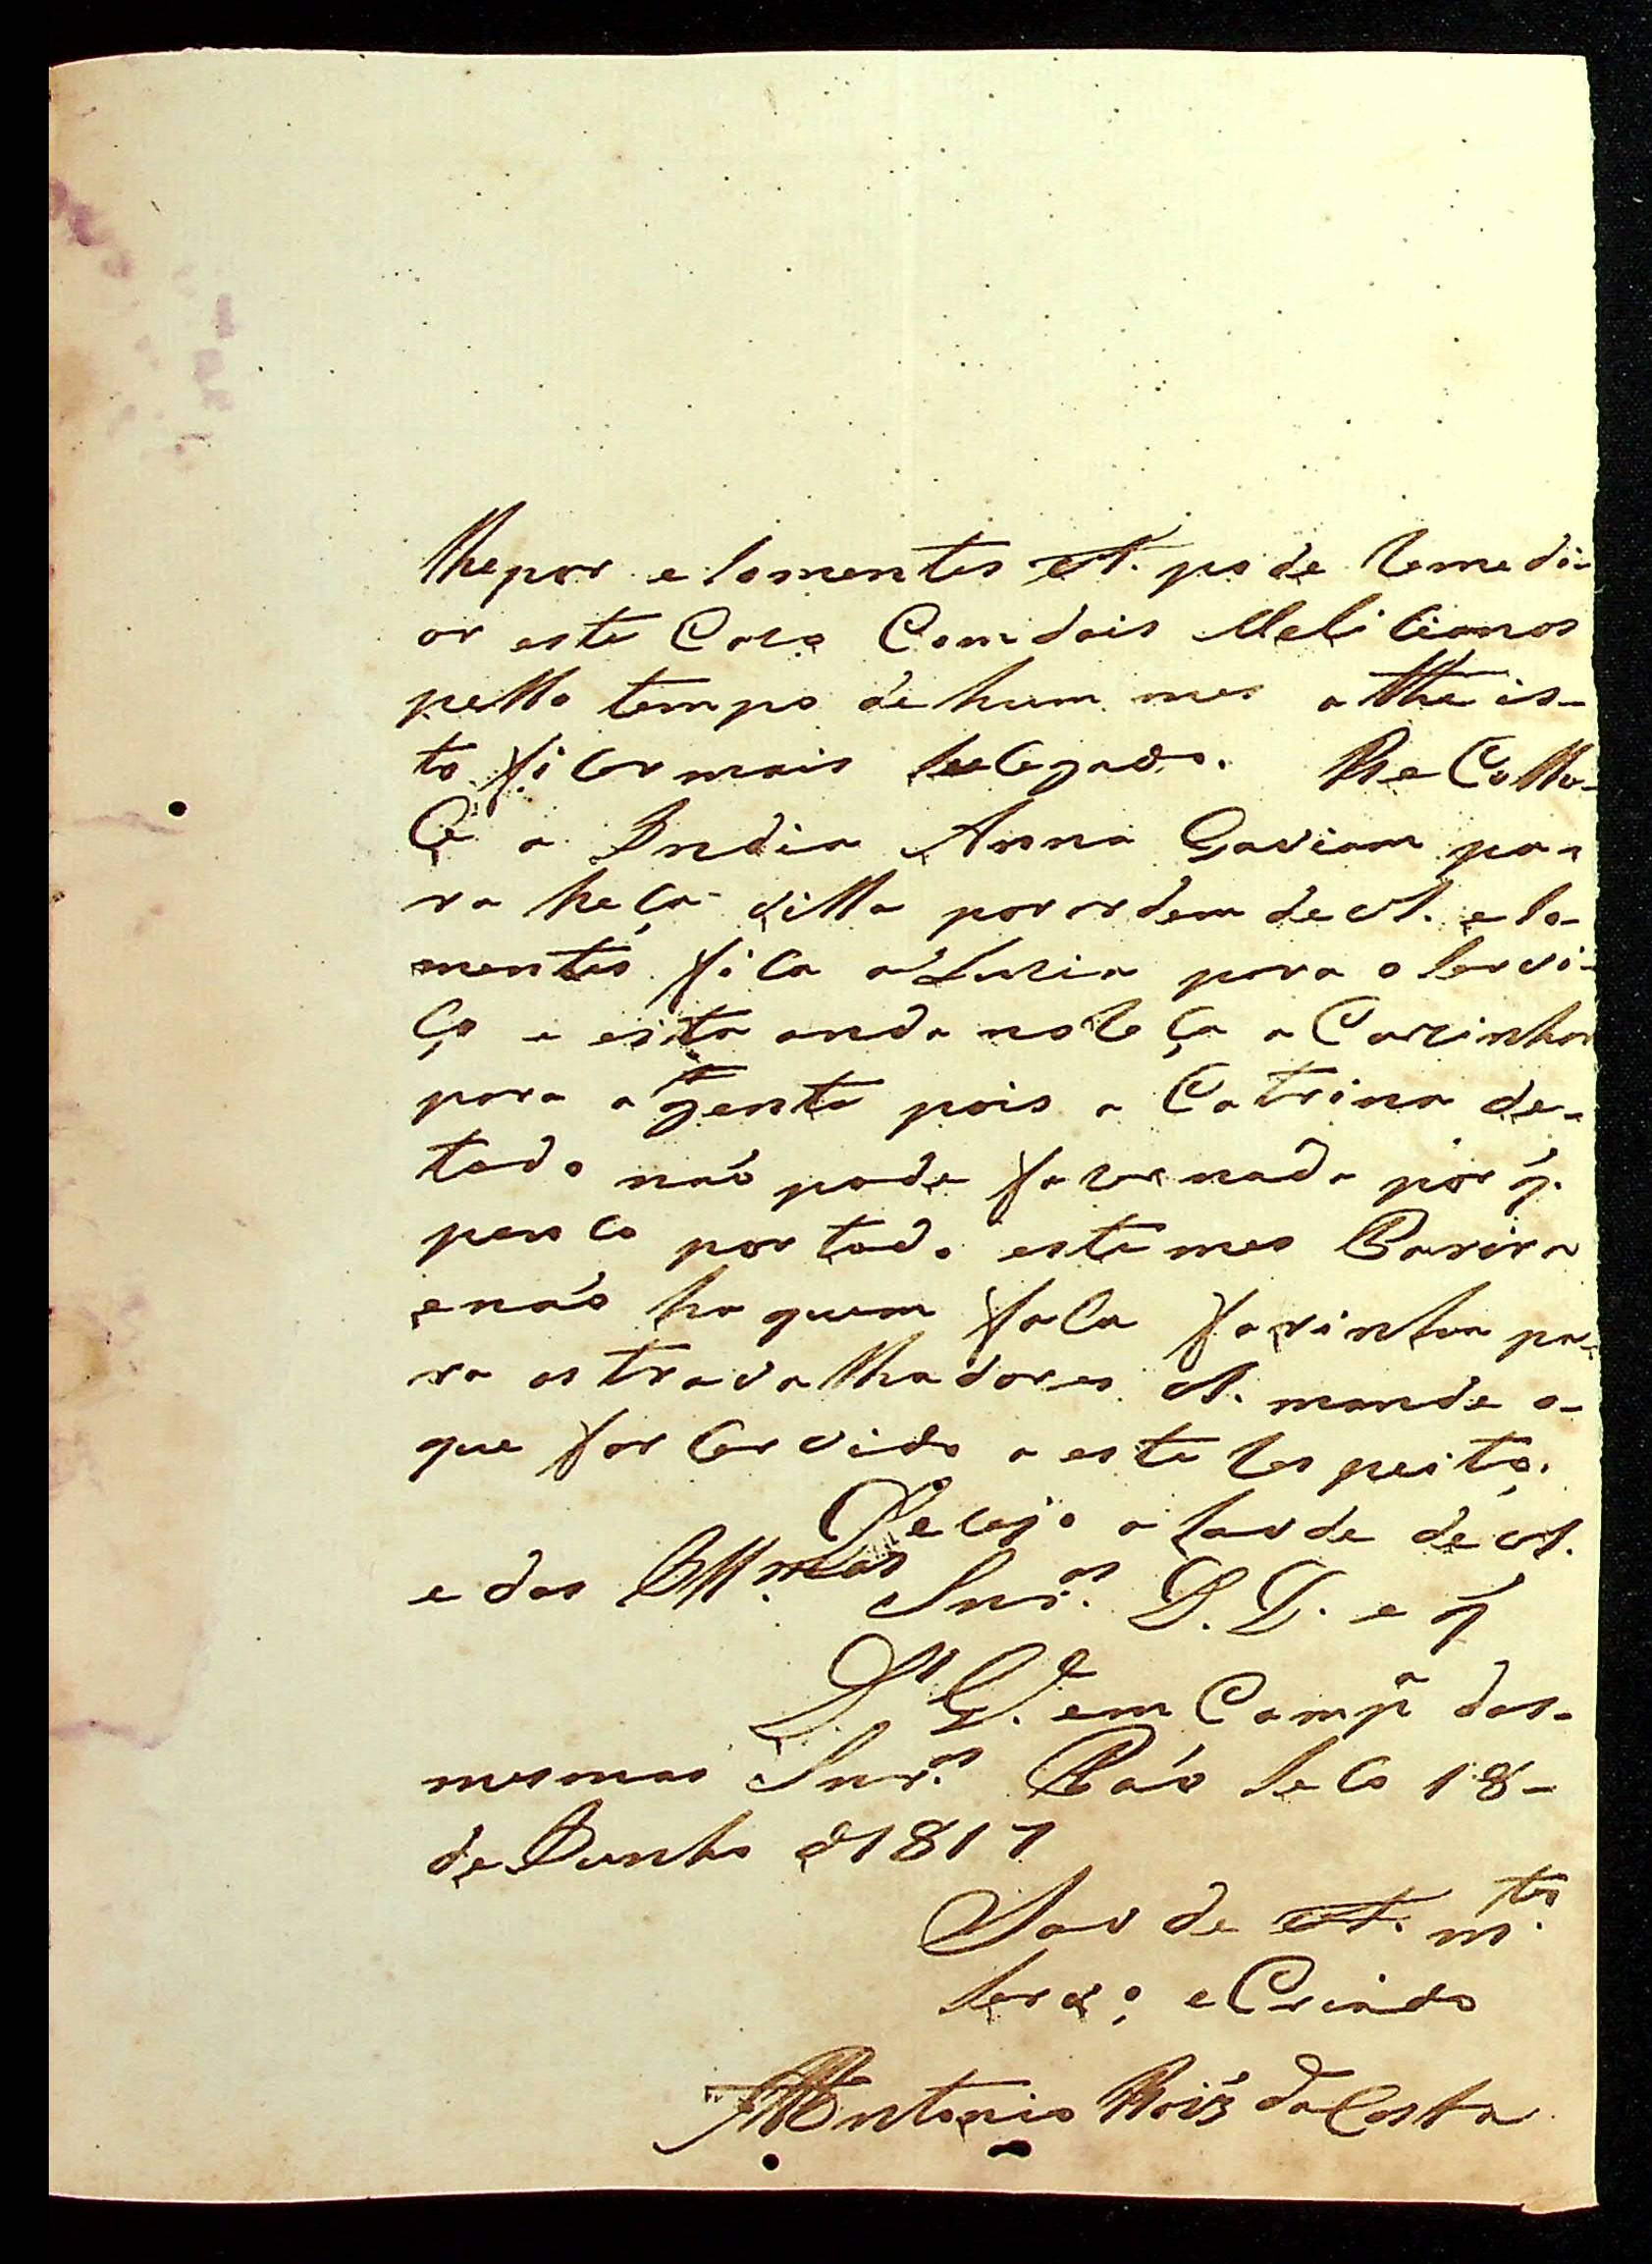 lhe por e somentes VS. pode remedi-
ar este Caza Com dois Melicianos
pello tempo de hum mes athe is-
to ficar mais sucegado. Re Colho-
Ce a India Anna Gaviam pa-
ra heça villa por ordem de VS. e so-
mentes fica a Luzia para o servi-
ço e esta anda na Roça a Cuzinhar
para a gente pois a Catrina de-
todo naõ pode fazer nada por q.
penço por todo este mes Parira
e naõ ha quem faça farinha pa-
ra os travalhadores VS. mande o-
que for Cervido a este respeito.
Decejo a saude de VS.
e das Illmas Snras D. D. e q
Ds Ge. em Campa das-
mesmas Snras Páo seco 18-
de Junho d 1817
Saude VS. mtes
servo: e Criado
Antonio Roiz da Costa